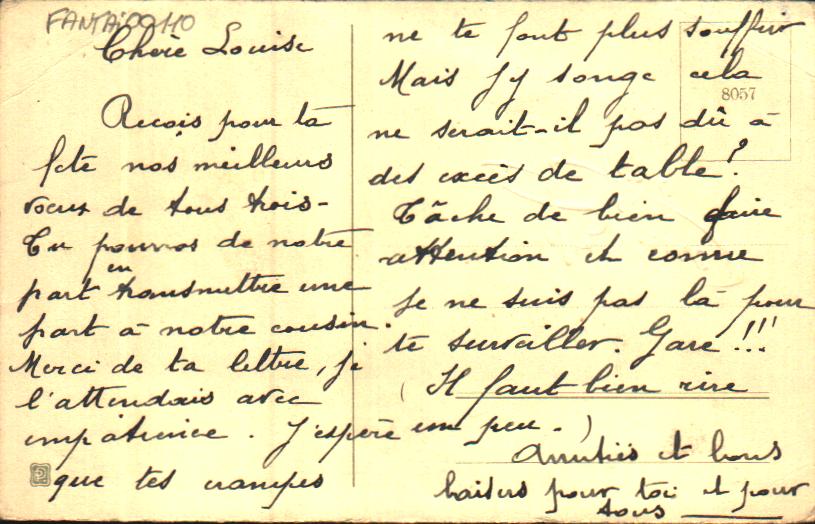 FANTAI00110
Chère Louise
Reçois pour ta
fête nos meilleurs
voeux de tous trois-
Tu pourras de notre
part en transmettre une
part à notre cousin.
Merci de ta lettre, je
l'attendais avec
impatience. J'espère
que tes crampes
ne te font plus souffrir
Mais j'y songe cela
8057
ne serait-il pas dû à
des excès de table?
Tâche de bien faire
attention et comme
je ne suis pas là pour
te surveiller. Gare!!!
(Il faut bien rire
un peu.)
Amitiés et bons
baisers pour toi et pour
tous